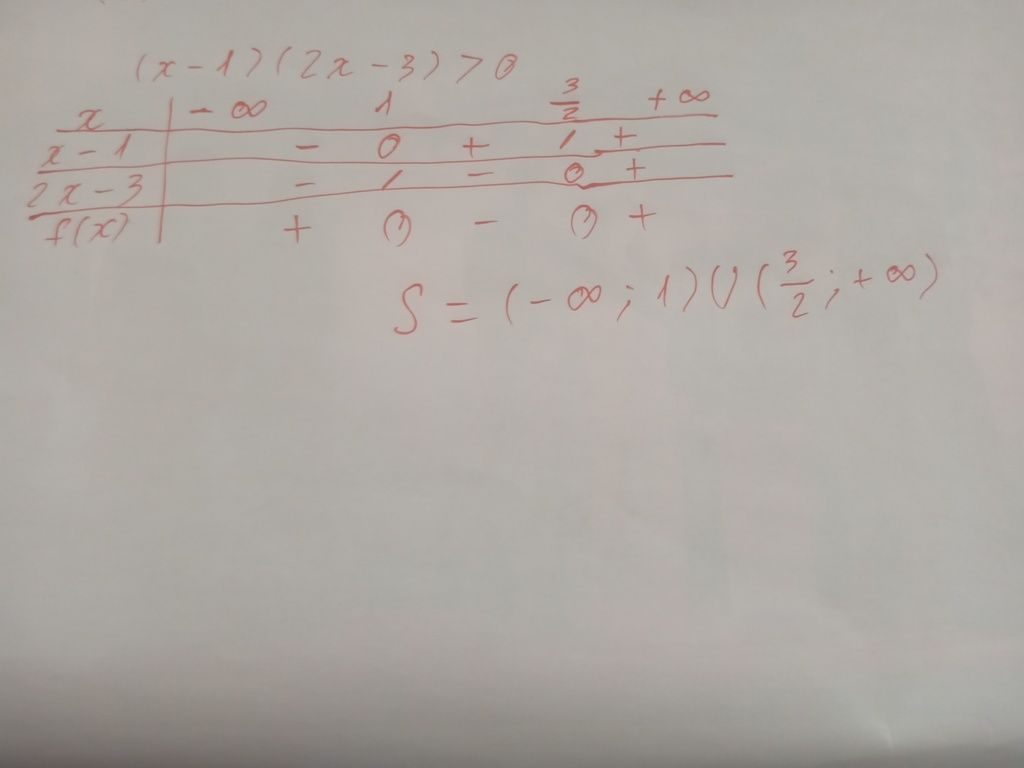 (x-1)(2x-3)>0
x | -∞ 1 3/2 +∞
x-1 | - 0 + / +
2x-3 | - / - 0 +
f(x) | + 0 - 0 +
S = (-∞; 1) ∪ (3/2; +∞)